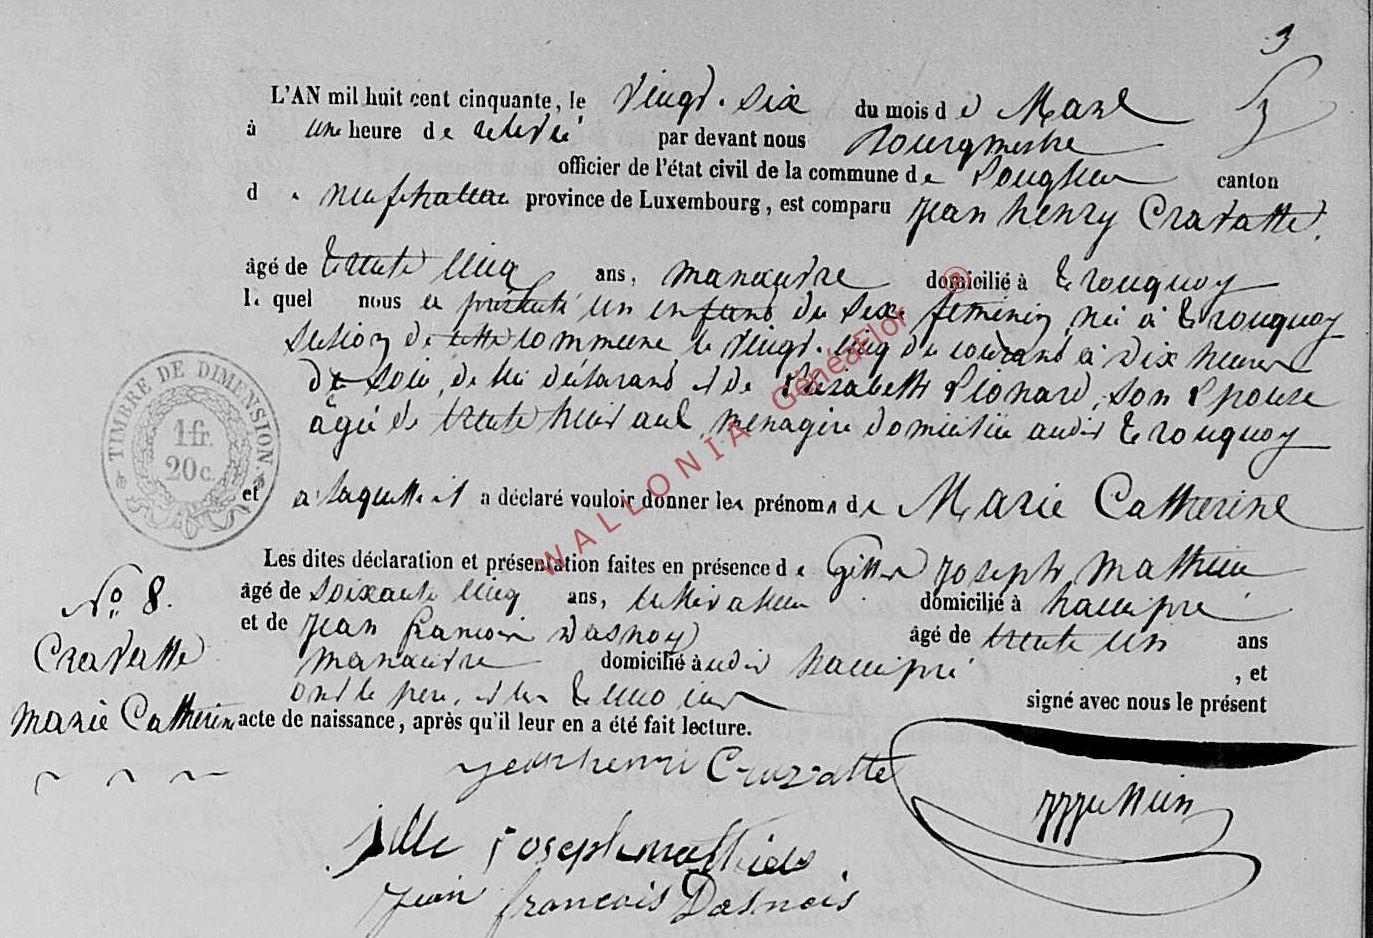 3
L'AN mil huit cent cinquante, le vingt-six du mois d e Mars
à une heure de relevée par devant nous Bourgmestre
officier de l'état civil de la commune de Longlier canton
d e Neufchateau province de Luxembourg, est comparu Jean henry Cravatte,
âgé de trente cinq ans, manœuvre domicilié à tronquoy
le quel nous a présenté un enfant du sexe féminin, née à tronquoy
section de cette commune, le vingt-cinq du courant à dix heures
de soir, de lui déclarant et de Elizabeth Pionard, son épouse
âgée de trente huit ans, ménagère domiciliée audit tronquoy
et a laquelle il a déclaré vouloir donner les prénoms de Marie Catherine
Les dites déclaration et présentation faites en présence de Gille Joseph Mathieu
âgé de soixante cinq ans, cultivateur domicilié à hamipré
et de Jean françois Dasnoy âgé de trente un ans
manœuvre domicilié audit hamipré, et
ont le père, et les témoins signé avec nous le présent
acte de naissance, après qu'il leur en a été fait lecture.
No 8.
Cravatte
Marie Catherine
TIMBRE DE DIMENSION
1 fr.
20 c.
jean henri Cravatte
jille joseph mathieu
jean francois Dasnois
WALLONIA GénéaFlor ®